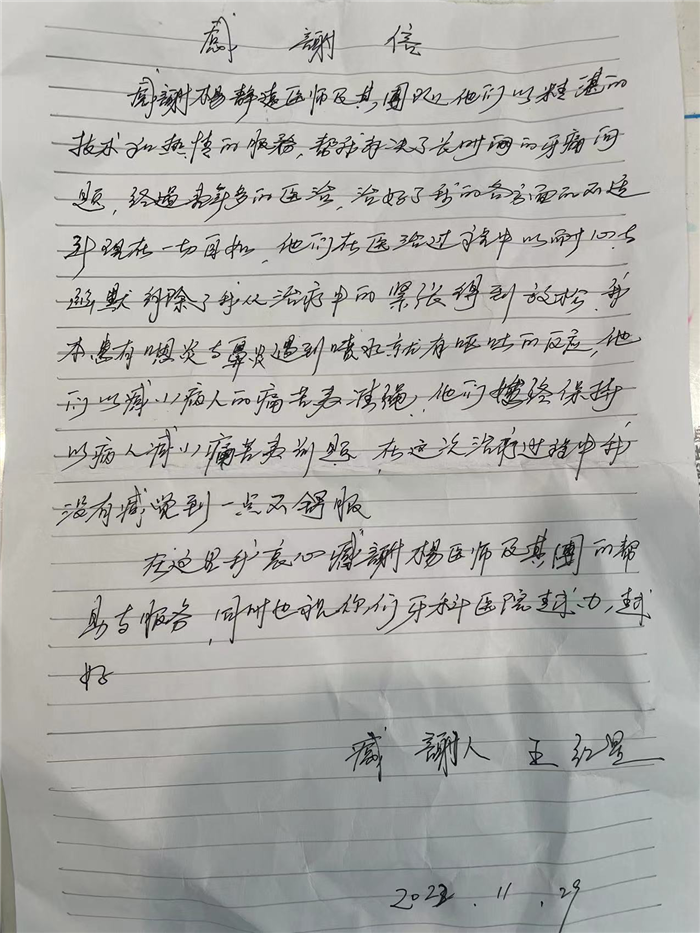 感謝信
感謝杨静远医师及其團队他们以精湛的
技术和热情的服務,帮我解决了长时间的牙痛问
题,经过半年多的医治,治好了我的各方面的不适
到现在一切良好,他们在医治过程中以耐心与
幽默解除了我从治疗中的紧张得到放松,我
本患有咽炎与鼻炎遇到喷水就有呕吐的反应,他
们以减小病人的痛苦为准绳,他们始终保持
以病人减小痛苦为前题,在这次治疗过程中我
没有感觉到一点不舒服
在这里我衷心感謝杨医师及其團的帮
助与服务,同时也祝你们牙科医院越办,越
好
感謝人 王红星
2023.11.29